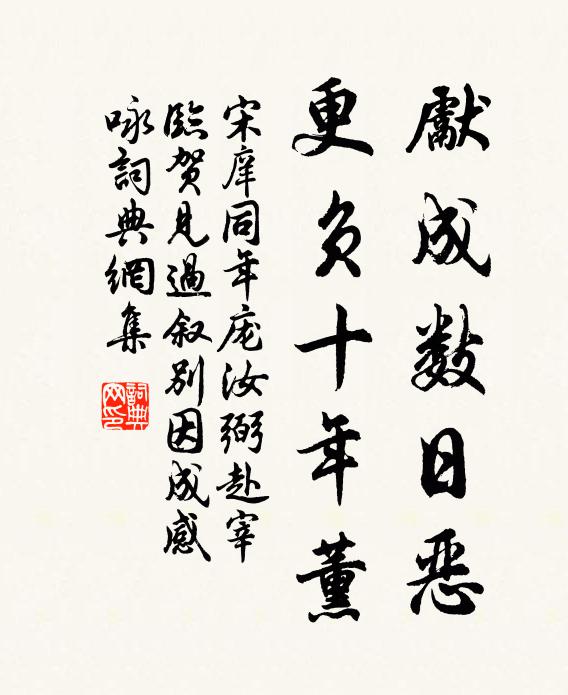 獻成数日恶
更负十年薰
宋庠同年庞汝弼赴宰
临贺见過叙别因成感
咏詞典網集
詞典网印